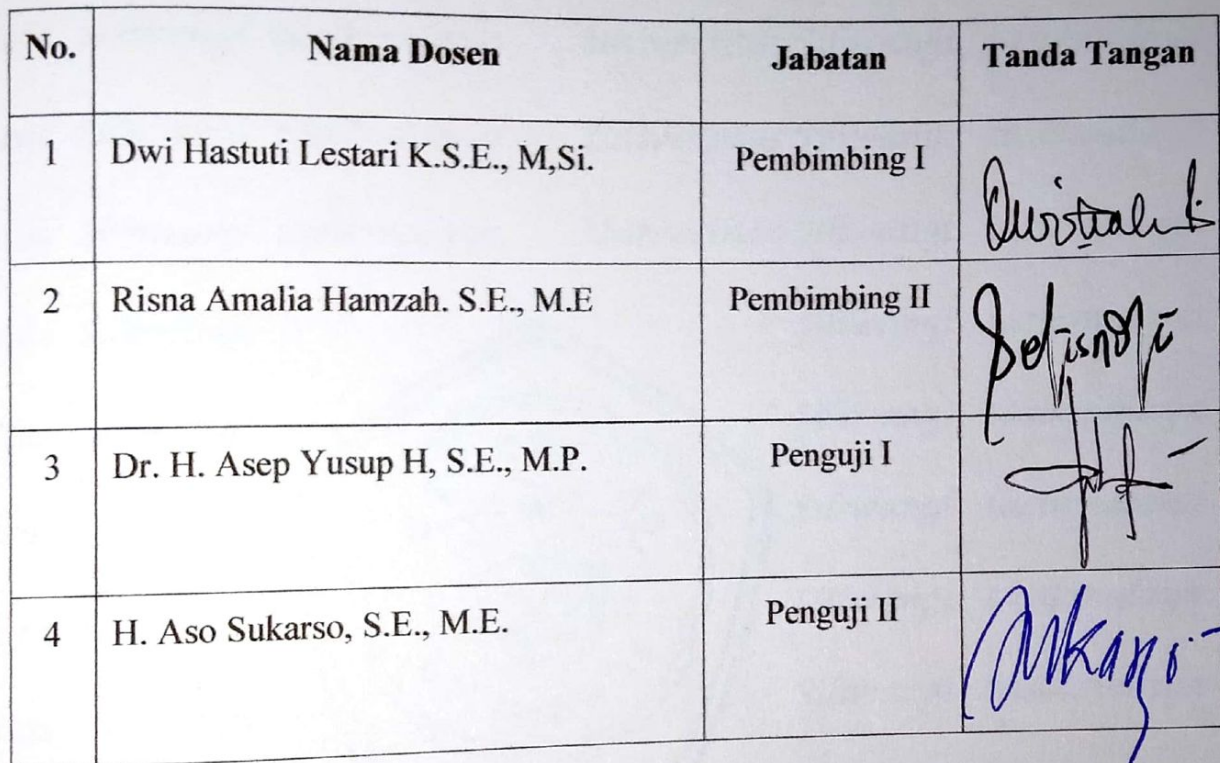 No. Nama Dosen Jabatan Tanda Tangan
1 Dwi Hastuti Lestari K.S.E., M,Si. Pembimbing I
2 Risna Amalia Hamzah. S.E., M.E Pembimbing II
3 Dr. H. Asep Yusup H, S.E., M.P. Penguji I
4 H. Aso Sukarso, S.E., M.E. Penguji II